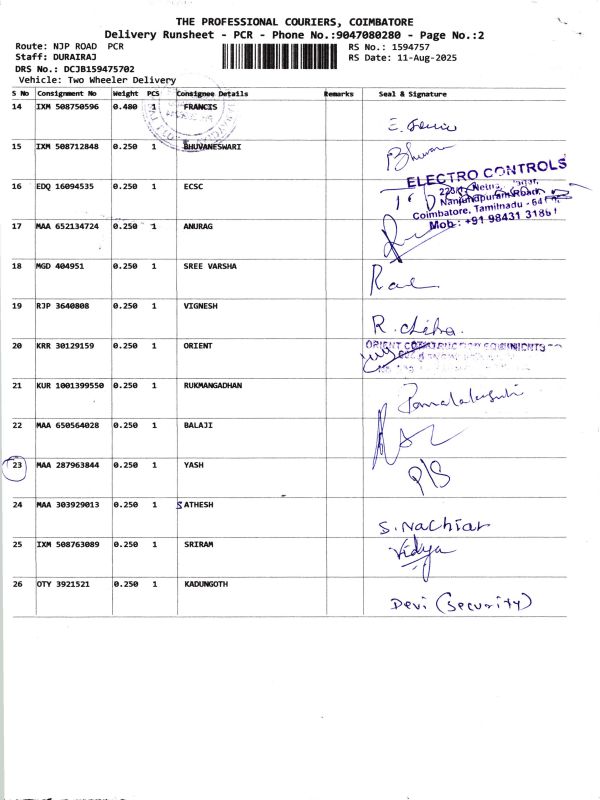 THE PROFESSIONAL COURIERS, COIMBATORE
Delivery Runsheet - PCR - Phone No.:9047080280 - Page No.:2
Route: NJP ROAD PCR
RS No.: 1594757
Staff: DURAIRAJ
RS Date: 11-Aug-2025
DRS No.: DCJB159475702
Vehicle: Two Wheeler Delivery
S No Consignment No Weight PCS Consignee Details Remarks Seal & Signature
14 IXM 508750596 0.480 1 FRANCIS
15 IXM 508712848 0.250 1 BHUVANESWARI
16 EDQ 16094535 0.250 1 ECSC
ELECTRO CONTROLS
Nanjundapuram Road,
Coimbatore, Tamilnadu - 641
Mob : +91 98431 31861
17 MAA 652134724 0.250 1 ANURAG
18 MGD 404951 0.250 1 SREE VARSHA
19 RJP 3640808 0.250 1 VIGNESH
R. chitra.
20 KRR 30129159 0.250 1 ORIENT
ORIENT
21 KUR 1001399550 0.250 1 RUKMANGADHAN
22 MAA 650564028 0.250 1 BALAJI
23 MAA 287963844 0.250 1 YASH
24 MAA 303929013 0.250 1 SATHESH
S. Nachiar
25 IXM 508763089 0.250 1 SRIRAM
Vidya
26 OTY 3921521 0.250 1 KADUNGOTH
Devi (Security)